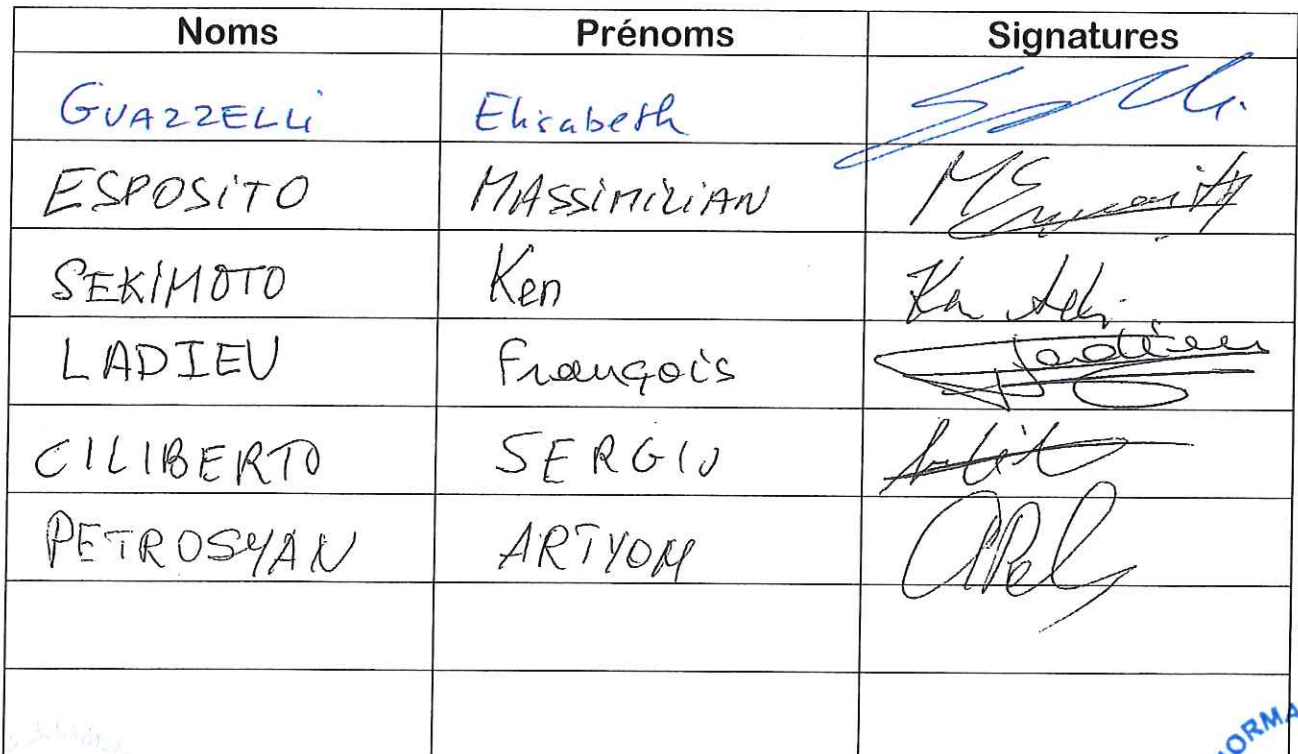 Noms Prénoms Signatures
GUAZZELLi Elisabeth
ESPOSiTO MASSiMILiAN
SEKIMOTO Ken
LADIEU François
CILIBERTO SERGIO
PETROSYAN ARTYOM
ORMA